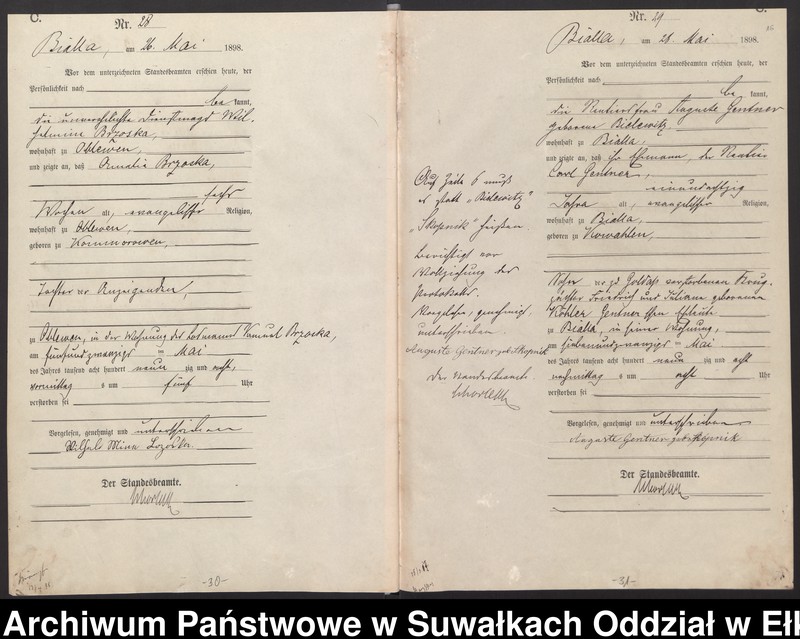 C.
Nr. 28
Bialla, am 26. Mai 1898.
Vor dem unterzeichneten Standesbeamten erschien heute, der
Persönlichkeit nach
be kannt,
die unverehelichte Dienstmagd Wil-
helmine Brzoska,
wohnhaft zu Oblewen,
und zeigte an, daß Amalie Brzoska,
sechs
Wochen alt, evangelischer Religion,
wohnhaft zu Oblewen,
geboren zu Kommorowen,
Tochter der Anzeigenden,
zu Oblewen, in der Wohnung des Brzoska,
am fünfundzwanzigsten Mai
des Jahres tausend acht hundert neun zig und acht,
vormittag s um fünf Uhr
verstorben sei
Vorgelesen, genehmigt und unterschrieben
Der Standesbeamte.
-30-
C.
Nr. 29
Bialla, am 28. Mai 1898.
Vor dem unterzeichneten Standesbeamten erschien heute, der
Persönlichkeit nach
be kannt,
die Rentierfrau Auguste Gentner
geborene Bielewitz,
wohnhaft zu Bialla,
und zeigte an, daß ihr Ehemann, der Rentier
Carl Gentner,
einundachtzig
Jahre alt, evangelischer Religion,
wohnhaft zu Bialla,
geboren zu Kowahlen,
Sohn der zu Goldap verstorbenen
Friedrich und Juliane geborenen
Köhler Gentner'schen Eheleute
zu Bialla, in seiner Wohnung,
am siebenundzwanzigsten Mai
des Jahres tausend acht hundert neun zig und acht
nachmittag s um acht Uhr
verstorben sei
Vorgelesen, genehmigt und unterschrieben
Auguste Gentner geb Skopnik
Der Standesbeamte.
-31-
Auf Zeile 6 muß
es statt „Bielewitz"
„Skopnik" heißen.
Berichtigt vor
Vollziehung des
Protokolls.
Vorgelesen, genehmigt,
unterschrieben.
Auguste Gentner geb. Skopnik
Der Standesbeamte.
Archiwum Państwowe w Suwałkach Oddział w Ełk